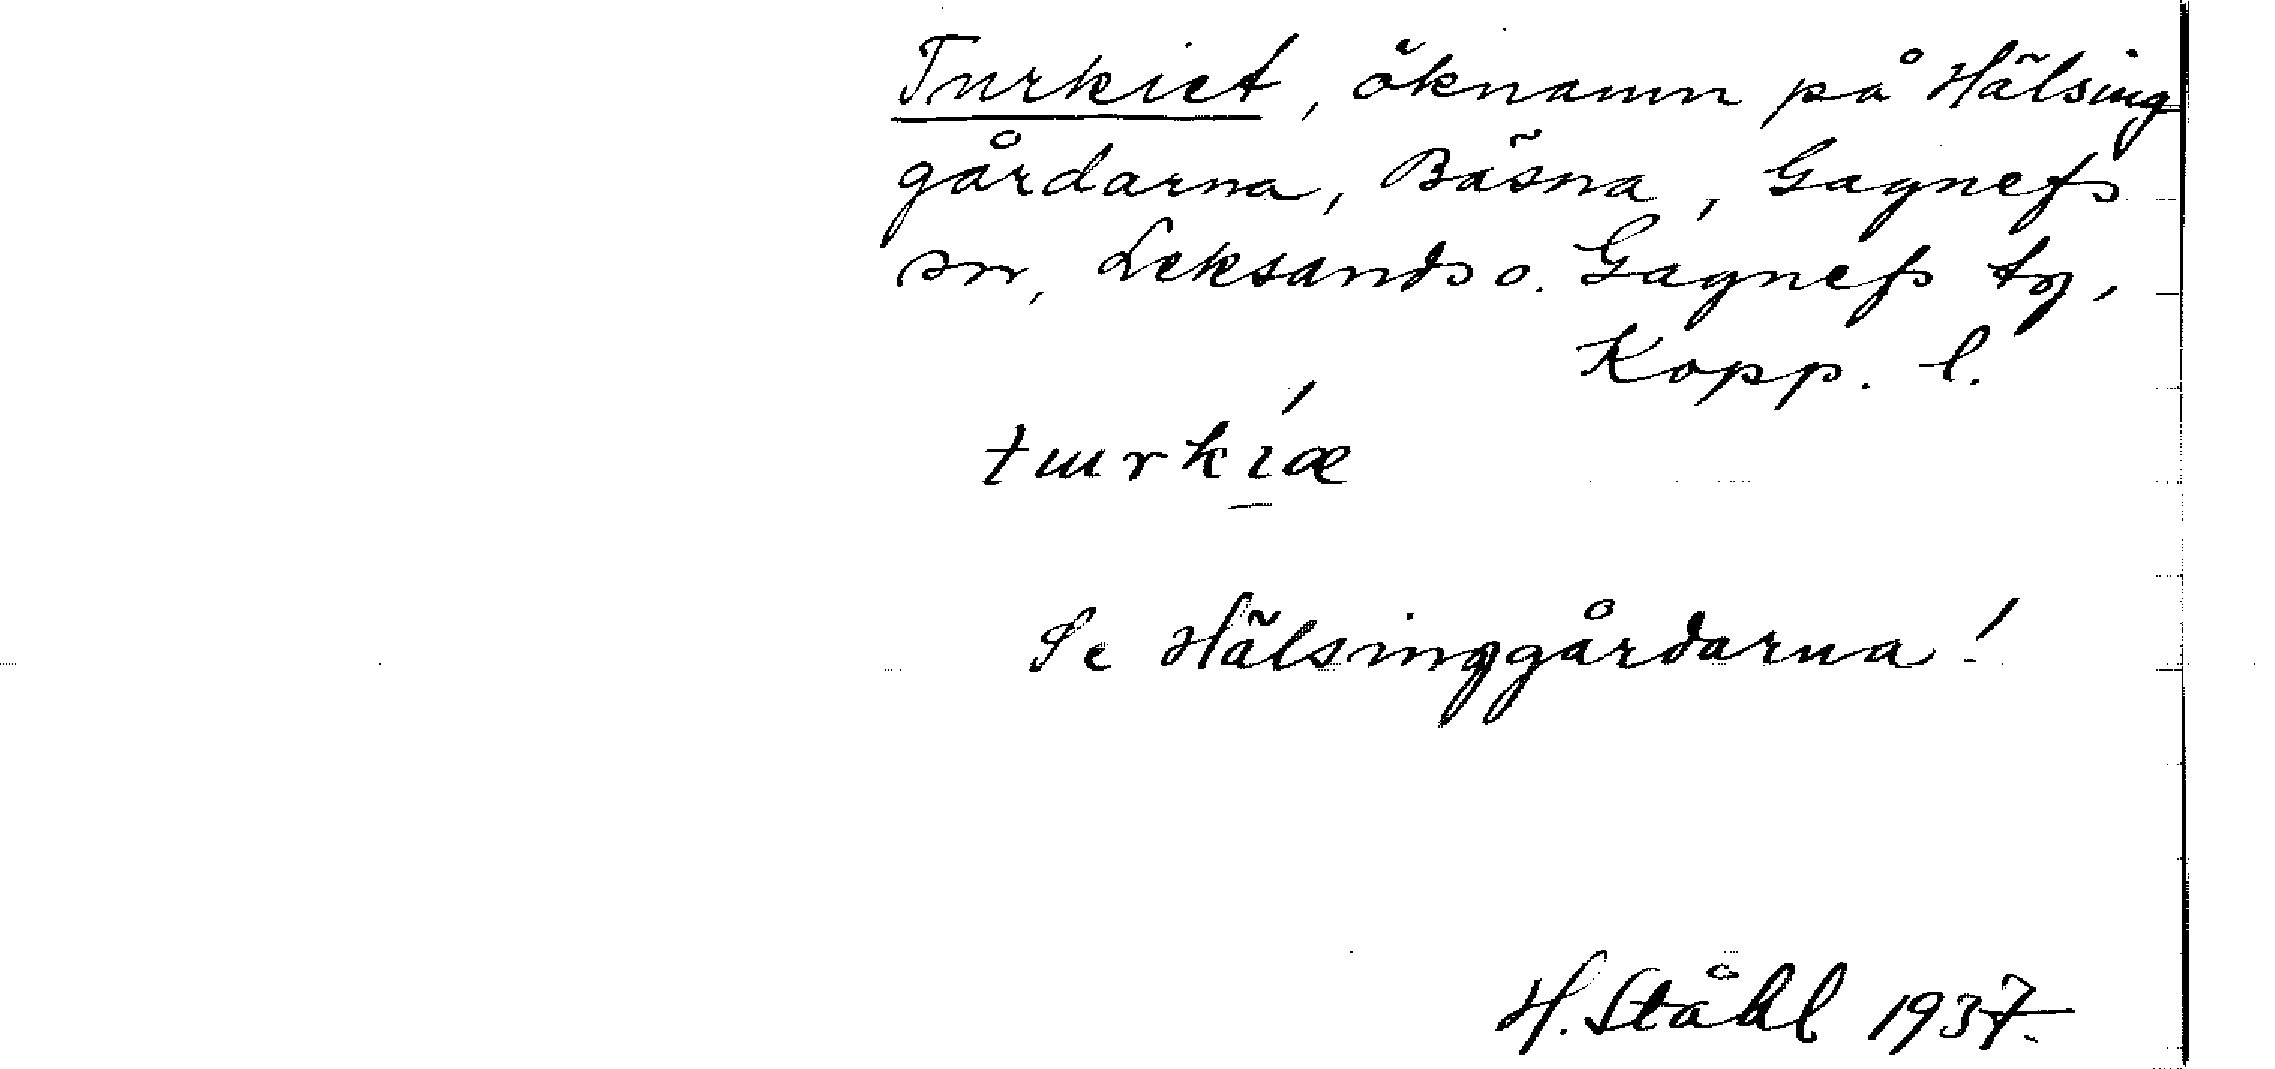 Turkiet, öknamn på Hälsing
gårdarna, Bäsna, Gagnefs
sn, Leksands o. Gagnefs tg,
Kopp. l.
tɯrkíæ
Se Hälsinggårdarna!
H. Ståhl 1937.